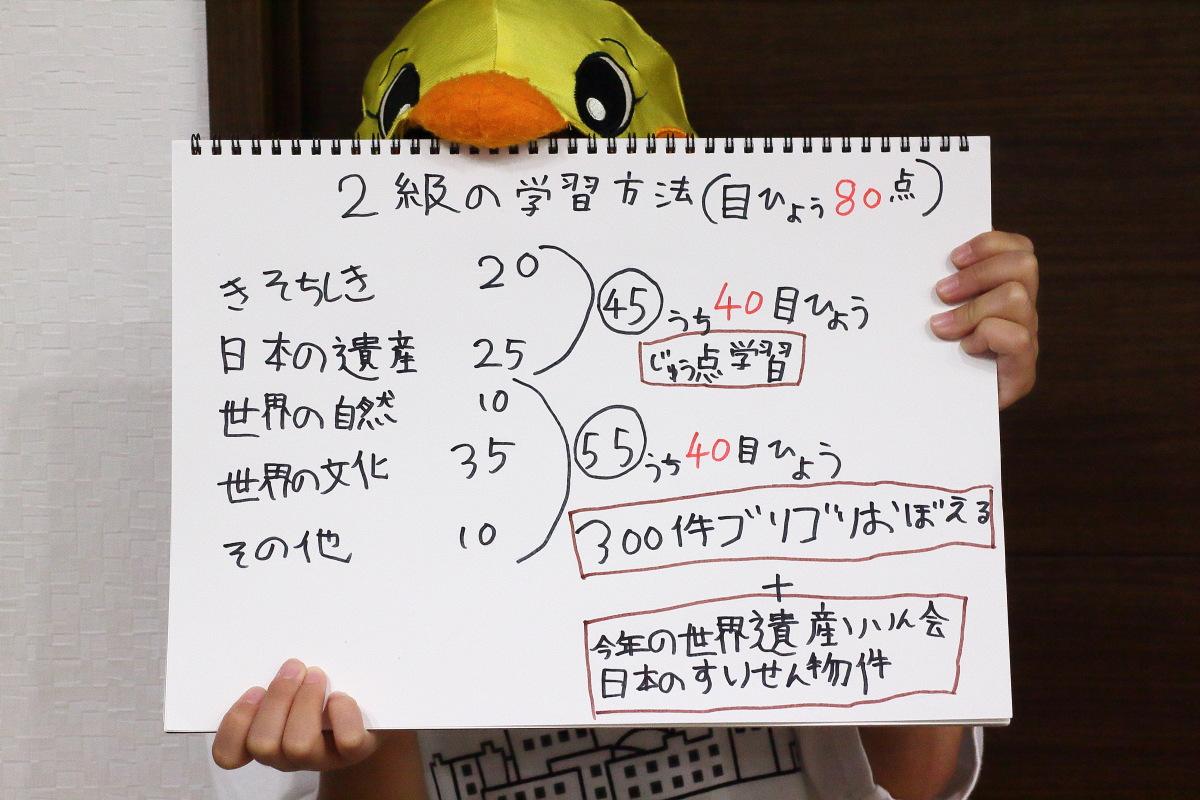 2級の学習方法(目ひょう80点)
きそちしき 20
日本の遺産 25
45 うち40目ひょう
じゅう点学習
世界の自然 10
世界の文化 35
その他 10
55 うち40目ひょう
300件ゴリゴリおぼえる
+
今年の世界遺産いいん会
日本のすいせん物件